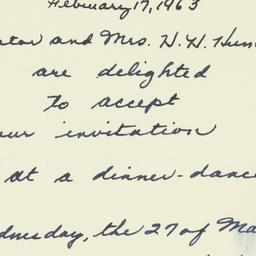 February 17, 1963
ator and Mrs. H. H. Hum
are delighted
to accept
our invitation
at a dinner-dance
dnesday, the 27 of Ma